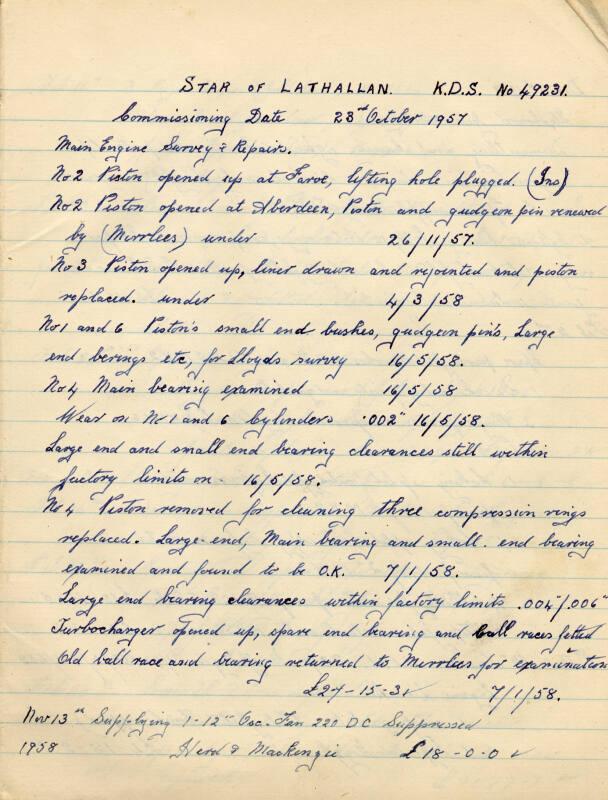 STAR OF LATHALLAN. K.D.S. No 49231.
Commissioning Date 23rd October 1957
Main Engine Survey & Repairs.
No 2 Piston opened up at Faroe, lifting hole plugged. (Ins)
No 2 Piston opened at Aberdeen, Piston and gudgeon pin renewed
by (Mirrlees) under 26/11/57.
No 3 Piston opened up, liner drawn and rejointed and piston
replaced. under 4/3/58
No 1 and 6 Piston's small end bushes, gudgeon pins, Large
end berings etc, for Lloyds survey 16/5/58.
No 4 Main bearing examined 16/5/58
Wear on No 1 and 6 Cylinders .002" 16/5/58.
Large end and small end bearing clearances still within
factory limits on 16/5/58.
No 4 Piston removed for cleaning three compression rings
replaced. Large end, Main bearing and small end bearing
examined and found to be O.K. 7/1/58.
Large end bearing clearances within factory limits .004"/.006"
Turbocharger opened up, spare end bearing and ball races fitted
Old ball race and bearing returned to Mirrlees for examination
£27-15-3 ✓ 7/1/58.
Nov 13th Supplying 1-12" Osc. Fan 220 DC Suppressed
1958 Herd & MacKenzie £18-0-0 ✓